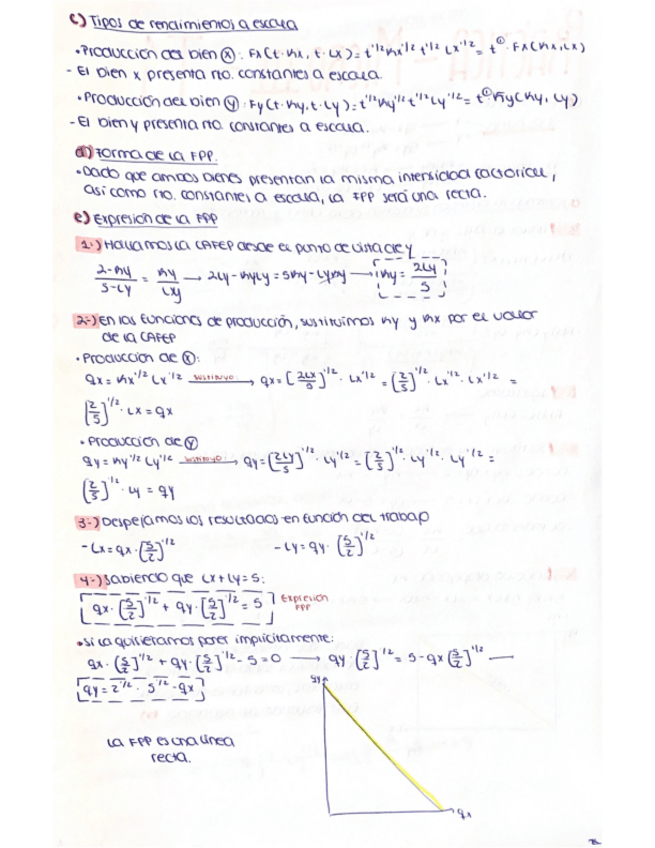 c) Tipos de rendimientos a escala
• Producción del bien (x): Fx(t·Kx, t·Lx) = t^1/2 Kx^1/2 t^1/2 Lx^1/2 = t^① · Fx(Kx, Lx)
- El bien x presenta rto. constantes a escala.
• Producción del bien (y): Fy(t·Ky, t·Ly) = t^1/2 Ky^1/2 t^1/2 Ly^1/2 = t^① Fy(Ky, Ly)
- El bien y presenta rto. constantes a escala.
d) Forma de la FPP.
• Dado que ambos bienes presentan la misma intensidad factorial,
así como rto. constantes a escala, la FPP será una recta.
e) Expresión de la FPP
1-) Hallamos la CAFEP desde el punto de vista de Y
2-Ky/5-Ly = Ky/Ly → 2Ly - KyLy = 5Ky - LyKy → Ky = 2Ly/5
2-) En las funciones de producción, sustituimos Ky y Kx por el valor
de la CAFEP
• Producción de (x):
qx = Kx^1/2 Lx^1/2 sustituyo → qx = [2Lx/5]^1/2 · Lx^1/2 = [2/5]^1/2 · Lx^1/2 · Lx^1/2 =
[2/5]^1/2 · Lx = qx
• Producción de (y)
qy = Ky^1/2 Ly^1/2 sustituyo → qy = [2Ly/5]^1/2 · Ly^1/2 = [2/5]^1/2 · Ly^1/2 · Ly^1/2 =
[2/5]^1/2 · Ly = qy
3-) Despejamos los resultados en función del trabajo
- Lx = qx · [5/2]^1/2 - Ly = qy · [5/2]^1/2
4-) Sabiendo que Lx + Ly = 5:
qx · [5/2]^1/2 + qy · [5/2]^1/2 = 5 Expresión
FPP
• Si la quisieramos poner implícitamente:
qx · [5/2]^1/2 + qy · [5/2]^1/2 - 5 = 0 → qy · [5/2]^1/2 = 5 - qx [5/2]^1/2 —
qy = 2^1/2 · 5^1/2 - qx
qy
La FPP es una línea
recta.
qx